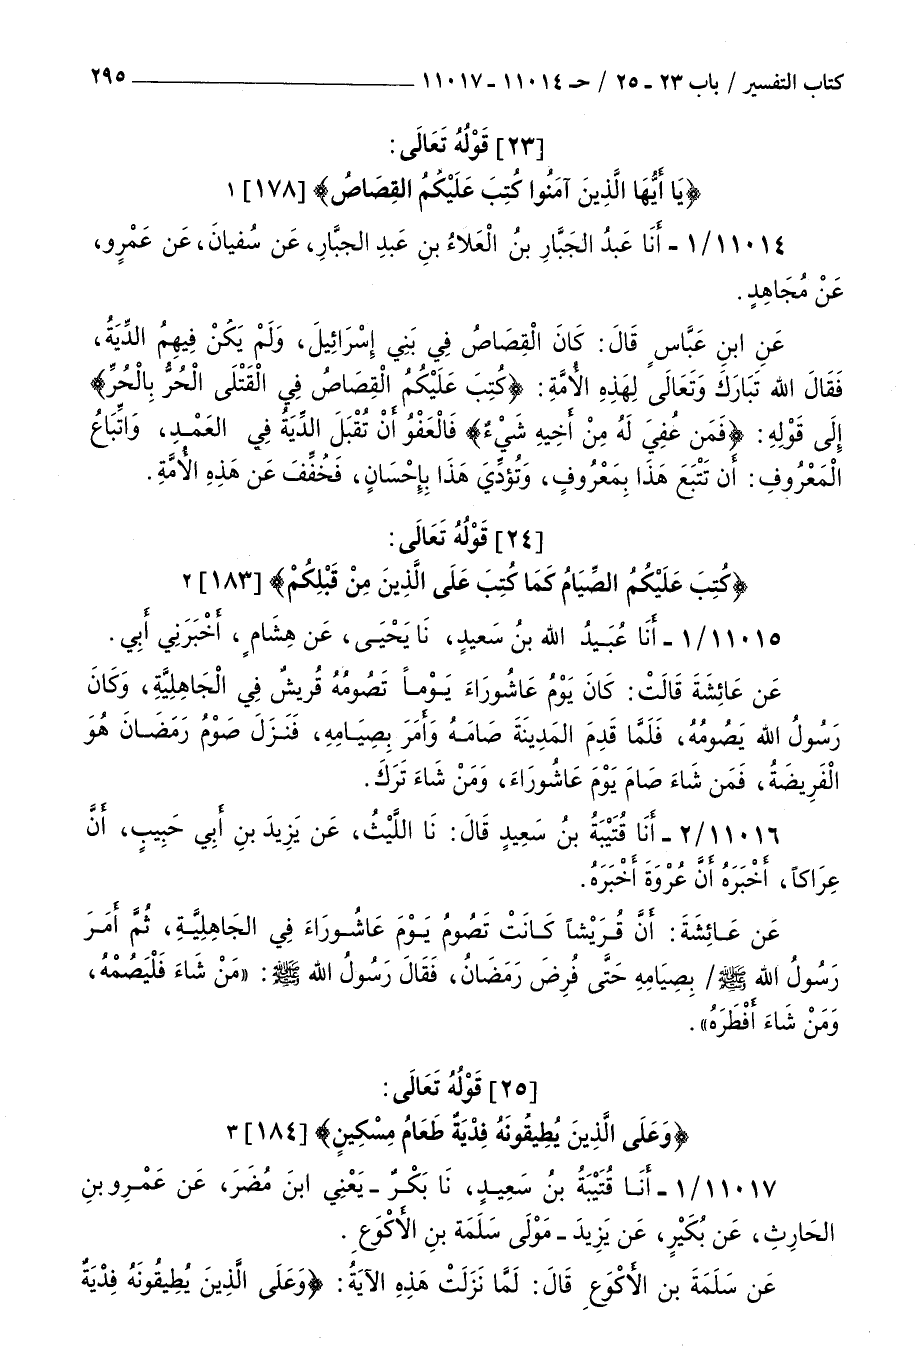 كتاب التفسير / باب ٢٣ - ٢٥ / حـ ١١٠١٤ - ١١٠١٧ ــــــــــــــــــــــــ ٢٩٥
[٢٣] قَوْلُهُ تَعَالَى:
﴿يَا أَيُّهَا الَّذِينَ آمَنُوا كُتِبَ عَلَيْكُمُ القِصَاصُ﴾ [١٧٨] ١
١/١١٠١٤ - أَنَا عَبدُ الجَبَّارِ بنُ الْعَلَاءُ بنِ عَبدِ الجبَّارِ، عَن سُفيانَ، عَن عَمْرٍو،
عَنْ مُجَاهِدٍ.
عَنِ ابنِ عَبَّاسٍ قَالَ: كَانَ الْقِصَاصُ فِي بَنِي إِسْرَائِيلَ، وَلَمْ يَكُنْ فِيهِمُ الدِّيَةُ،
فَقَالَ الله تَبَارَكَ وَتَعَالَى لِهَذِهِ الأُمَّةِ: ﴿كُتِبَ عَلَيْكُمُ الْقِصَاصُ فِي الْقَتْلَى الْحُرُّ بِالْحُرِّ﴾
إِلَى قَوْلِهِ: ﴿فَمَن عُفِيَ لَهُ مِنْ أَخِيهِ شَيْءٌ﴾ فَالْعَفْوُ أَنْ تُقْبَلَ الدِّيَةُ فِي العَمْدِ، وَاتِّبَاعُ
الْمَعْرُوفِ: أَن تَتْبَعَ هَذَا بِمَعْرُوفٍ، وَتُؤدِّيَ هَذَا بِإِحْسَانٍ، فَخُفِّفَ عَن هَذِهِ الأُمَّةِ.
[٢٤] قَوْلُهُ تَعَالَى:
﴿كُتِبَ عَلَيْكُمُ الصِّيَامُ كَمَا كُتِبَ عَلَى الَّذِينَ مِنْ قَبْلِكُمْ﴾ [١٨٣] ٢
١/١١٠١٥ - أَنَا عُبَيدُ الله بنُ سَعيدٍ، نَا يَحْيَى، عَن هِشَامٍ، أَخْبَرَنِي أَبِي.
عَن عَائِشَةَ قَالَتْ: كَانَ يَوْمُ عَاشُورَاءَ يَوْماً تَصُومُهُ قُريشٌ فِي الْجَاهِلِيَّةِ، وَكَانَ
رَسُولُ الله يَصُومُهُ، فَلَمَّا قَدِمَ المَدِينَةَ صَامَهُ وَأَمَرَ بِصِيَامِهِ، فَنَزَلَ صَوْمُ رَمَضَانَ هُوَ
الْفَرِيضَةُ، فَمَن شَاءَ صَامَ يَوْمَ عَاشُورَاءَ، وَمَنْ شَاءَ تَرَكَ.
٢/١١٠١٦ - أَنَا قُتَيْبَةُ بنُ سَعِيدٍ قَالَ: نَا اللَّيْثُ، عَن يَزِيدَ بنِ أَبي حَبِيبٍ، أَنَّ
عِرَاكاً، أَخْبَرَهُ أَنَّ عُرْوَةَ أَخْبَرَهُ.
عَن عَائِشَةَ: أَنَّ قُرَيْشاً كَانَتْ تَصُومُ يَوْمَ عَاشُورَاءَ فِي الجَاهِلِيَّةِ، ثُمَّ أَمَرَ
رَسُولُ الله ﷺ/ بِصِيَامِهِ حَتَّى فُرِضَ رَمَضَانُ، فَقَالَ رَسُولُ الله ﷺ: «مَنْ شَاءَ فَلْيَصُمْهُ،
وَمَنْ شَاءَ أَفْطَرَهُ».
[٢٥] قَوْلُهُ تَعَالَى:
﴿وَعَلَى الَّذِينَ يُطِيقُونَهُ فِدْيَةٌ طَعَامُ مِسْكِينٍ﴾ [١٨٤] ٣
١/١١٠١٧ - أَنَا قُتَيْبَةُ بنُ سَعِيدٍ، نَا بَكْرٌ - يَعْنِي ابنَ مُضَرَ، عَن عَمْرِو بنِ
الحَارِثِ، عَن بُكَيْرٍ، عَن يَزِيدَ - مَوْلَى سَلَمَة بنِ الأَكْوَعِ.
عَن سَلَمَةَ بن الأَكْوَعِ قَالَ: لَمَّا نَزَلَتْ هَذِهِ الآيَةُ: ﴿وَعَلَى الَّذِينَ يُطِيقُونَهُ فِدْيَةٌ